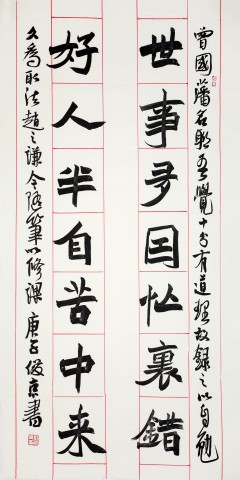 曾國藩名聯吾覺十分有道理故録之以自勉
世事多因忙裏錯
好人半自苦中来
久爲取法趙之謙今隨筆以修課庚子俊京書